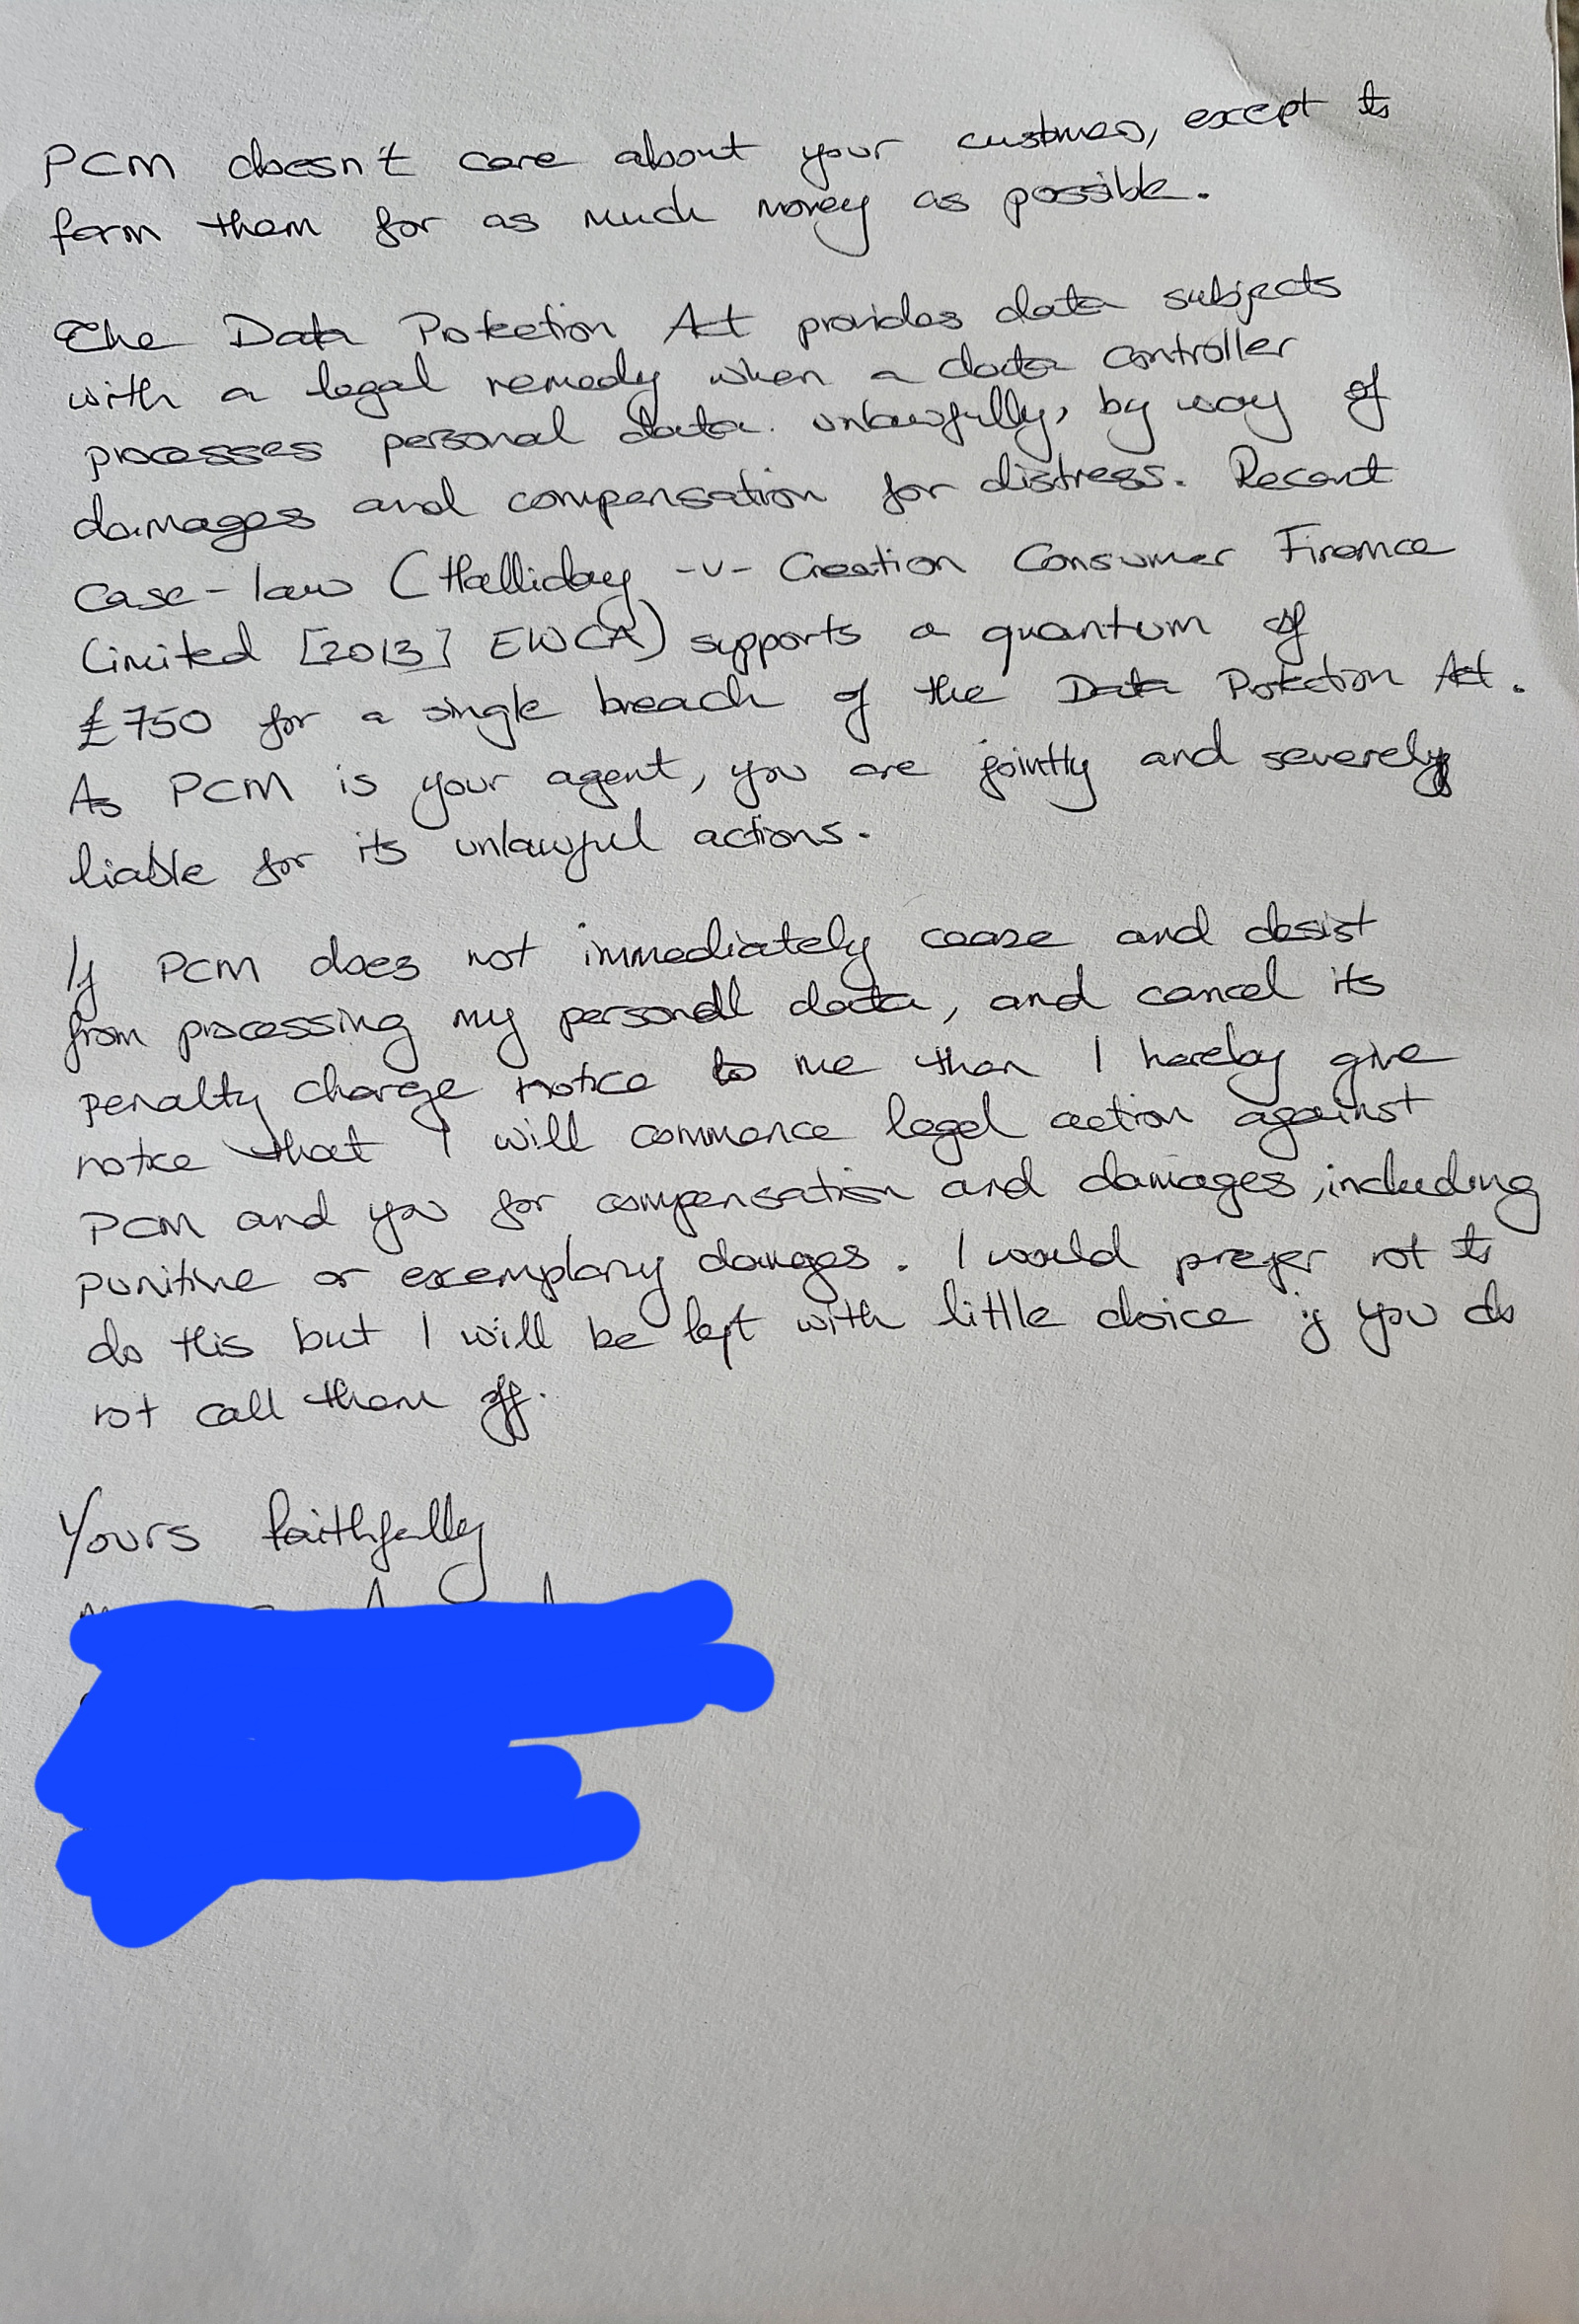 PCM doesn't care about your customers, except to
farm them for as much money as possible.
The Data Protection Act provides data subjects
with a legal remedy when a data controller
processes personal data unlawfully, by way of
damages and compensation for distress. Recent
case-law (Halliday -v- Creation Consumer Finance
Limited [2013] EWCA) supports a quantum of
£750 for a single breach of the Data Protection Act.
As PCM is your agent, you are jointly and severely
liable for its unlawful actions.
If PCM does not immediately cease and desist
from processing my personal data, and cancel its
penalty charge notice to me then I hereby give
notice that I will commence legal action against
PCM and you for compensation and damages, including
punitive or exemplary damages. I would prefer not to
do this but I will be left with little choice if you do
not call them off.
Yours faithfully